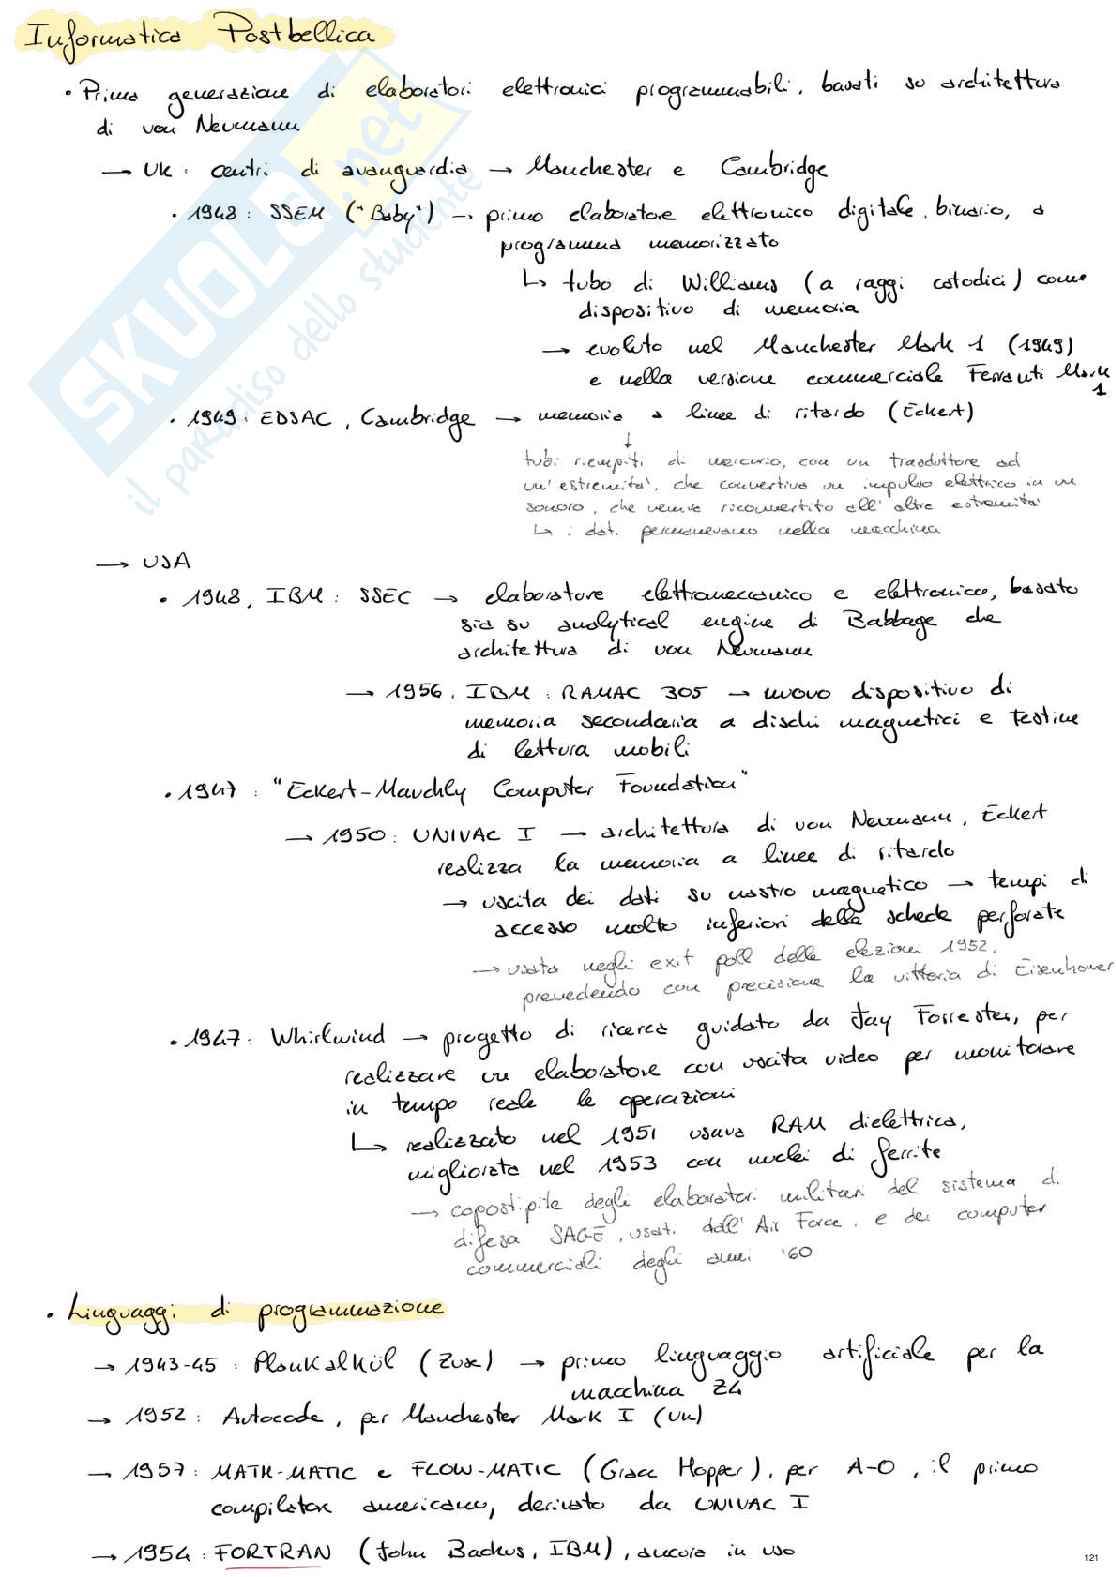 Informatica Postbellica
• Prima generazione di elaboratori elettronici programmabili, basati su architettura
di von Neumann
→ UK: centri di avanguardia → Manchester e Cambridge
• 1948: SSEM ("Baby") → primo elaboratore elettronico digitale, binario, a
programma memorizzato
↳ tubo di Williams (a raggi catodici) come
dispositivo di memoria
→ evoluto nel Manchester Mark 1 (1949)
e nella versione commerciale Ferranti Mark
1
• 1949: EDSAC, Cambridge → memoria a linee di ritardo (Eckert)
↓
tubi riempiti di mercurio, con un trasduttore ad
un'estremità, che convertiva un impulso elettrico in un
sonoro, che veniva riconvertito all'altra estremità
↳ i dati permanevano nella macchina
→ USA
• 1948, IBM: SSEC → elaboratore elettromeccanico e elettronico, basato
sia su analytical engine di Babbage che
architettura di von Neumann
→ 1956, IBM: RAMAC 305 → nuovo dispositivo di
memoria secondaria a dischi magnetici e testine
di lettura mobili
• 1947: "Eckert-Mauchly Computer Foundation"
→ 1950: UNIVAC I → architettura di von Neumann, Eckert
realizza la memoria a linee di ritardo
→ uscita dei dati su nastro magnetico → tempi di
accesso molto inferiori delle schede perforate
→ usata negli exit poll delle elezioni 1952,
prevedendo con precisione la vittoria di Eisenhower
• 1947: Whirlwind → progetto di ricerca guidato da Jay Forrester, per
realizzare un elaboratore con uscita video per monitorare
in tempo reale le operazioni
↳ realizzato nel 1951 usava RAM dielettrica,
migliorata nel 1953 con nuclei di ferrite
→ capostipite degli elaboratori militari del sistema di
difesa SAGE, usati dall'Air Force, e dei computer
commerciali degli anni '60
• Linguaggi di programmazione
→ 1943-45: Plankalkül (Zuse) → primo linguaggio artificiale per la
macchina Z4
→ 1952: Autocode, per Manchester Mark I (UK)
→ 1957: MATH-MATIC e FLOW-MATIC (Grace Hopper), per A-0, il primo
compilatore americano, derivato da UNIVAC I
→ 1954: FORTRAN (John Backus, IBM), ancora in uso
121
SKUOLA.net
il paradiso dello studente